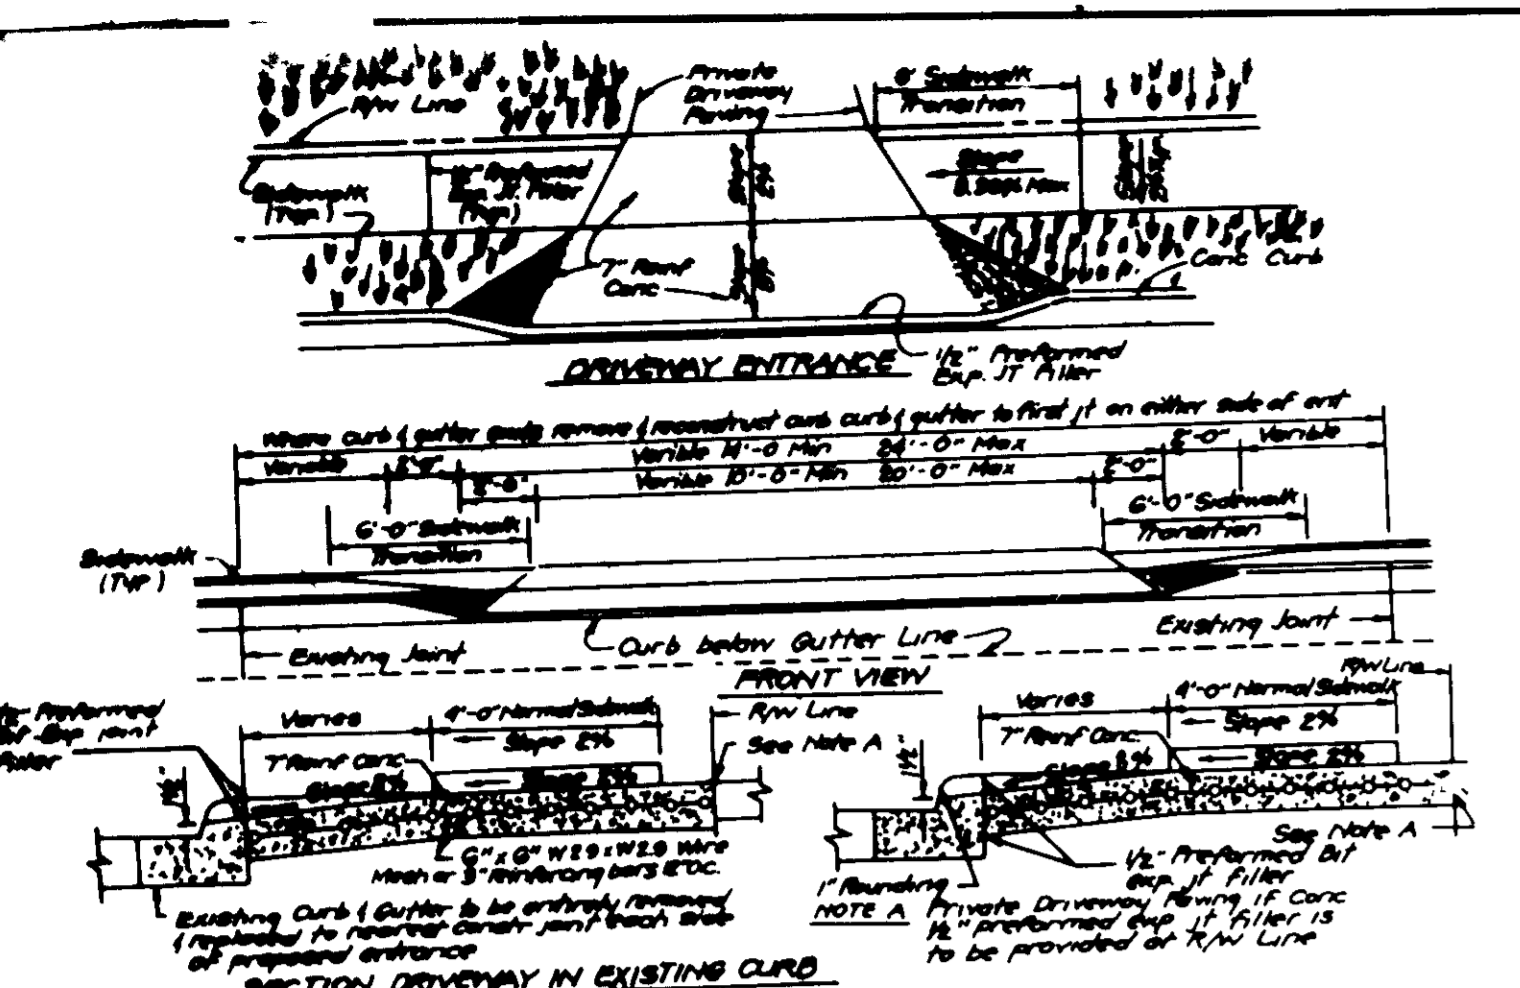 R/W Line
Private
Driveway
Paving
6' Sidewalk
Transition
Sidewalk
(Typ.)
1/2" Preformed
Exp. Jt. Filler
(Typ.)
Slope
2%
Slope
Max
Slope
7" Reinf
Conc
Slope
Conc Curb
DRIVEWAY ENTRANCE
1/2" Preformed
Exp. JT Filler
Where curb & gutter exists remove & reconstruct curb curb & gutter to first jt on either side of ent
Variable
Varible 14'-0 Min 24'-0" Max
2'-0"
Varible
2'-0"
Varible 10'-0" Min 20'-0" Max
2'-0"
6'-0" Sidewalk
Transition
6'-0" Sidewalk
Transition
Sidewalk
(Typ)
Existing Joint
Curb below Gutter Line
Existing Joint
FRONT VIEW
R/W Line
1/2" Preformed
Exp joint
Filler
Varies
4'-0" Normal Sidewalk
Slope 2%
R/W Line
See Note A
7" Reinf Conc
Slope 8%
Slope 2%
1½"
6" x 6" W2.9 x W2.9 Wire
Mesh or 3" reinforcing bars 12" OC.
Existing Curb & Gutter to be entirely removed
& replaced to nearest constr joint each side
of proposed entrance
SECTION DRIVEWAY IN EXISTING CURB
Varies
4'-0" Normal Sidewalk
Slope 2%
7" Reinf Conc.
Slope 8%
Slope 2%
1½"
See Note A
1/2" Preformed Bit
exp. jt filler
1" Rounding
NOTE A Private Driveway Paving if Conc
1/2" preformed exp jt filler is
to be provided at R/W Line